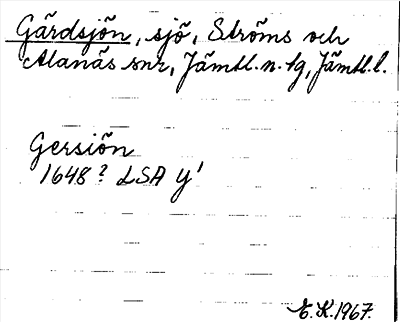 Gärdsjön, sjö, Ströms och
Alanäs snr, Jämtl. n. fg, Jämtl. l.
Gersiön
1648? LSA Y1
E.K. 1967.